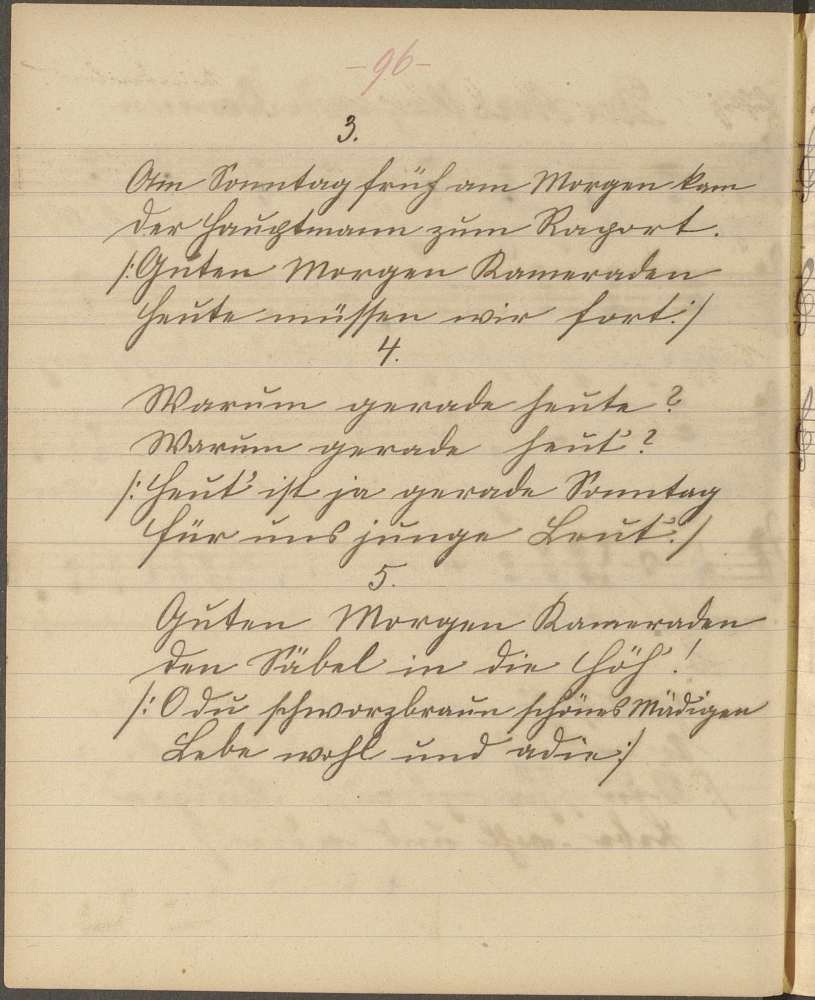 -96-
3.
Am Sonntag früh am Morgen kam
der Hauptmann zum Raport.
/: Guten Morgen Kameraden
heute müssen wir fort :/
4.
Warum gerade heute?
Warum gerade heut'?
/: Heut' ist ja gerade Sonntag
für uns junge Leut' :/
5.
Guten Morgen Kameraden
den Säbel in die Höh'!
/: O du schworzbraun schönes Mädigen
Lebe wohl und adie :/